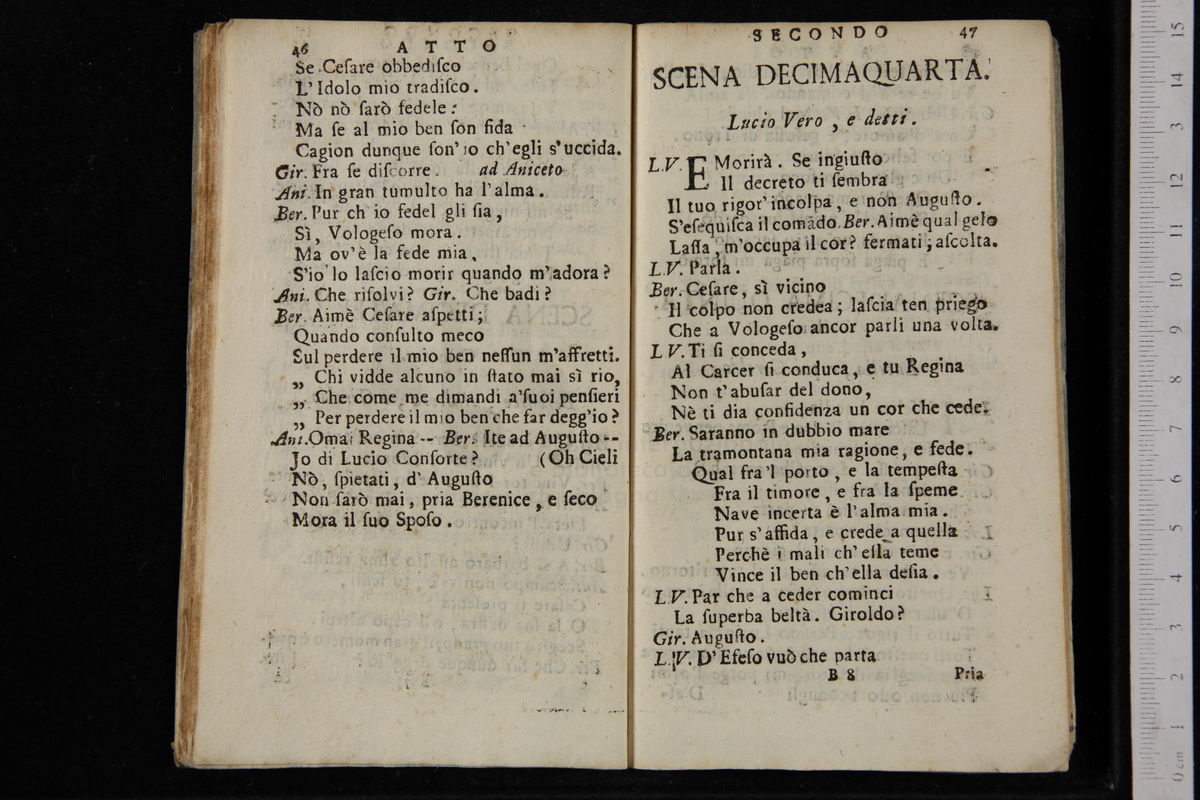 46 ATTO
Se Ceſare obbediſco
L'Idolo mio tradiſco.
Nò nò ſarò fedele:
Ma ſe al mio ben ſon fida
Cagion dunque ſon'io ch'egli s'uccida.
Gir. Fra ſe diſcorre. ad Aniceto
Ani. In gran tumulto ha l'alma.
Ber. Pur ch io fedel gli ſia,
Sì, Vologeſo mora.
Ma ov'è la fede mia,
S'io'lo laſcio morir quando m'adora?
Ani. Che riſolvi? Gir. Che badi?
Ber. Aimè Ceſare aſpetti;
Quando conſulto meco
Sul perdere il mio ben neſſun m'affretti.
„ Chi vidde alcuno in ſtato mai sì rio,
„ Che come me dimandi a'ſuoi penſieri
„ Per perdere il mio ben che far degg'io?
Ani. Omai Regina -- Ber. Ite ad Auguſto --
Jo di Lucio Conſorte? (Oh Cieli
Nò, ſpietati, d'Auguſto
Non ſarò mai, pria Berenice, e ſeco
Mora il ſuo Spoſo.
SECONDO 47
SCENA DECIMAQUARTA.
Lucio Vero, e detti.
L.V. E Morirà. Se ingiuſto
Il decreto ti ſembra
Il tuo rigor'incolpa, e non Auguſto.
S'eſequiſca il comãdo. Ber. Aimè qual gelo
Laſſa, m'occupa il cor? fermati; aſcolta.
L.V. Parla.
Ber. Ceſare, sì vicino
Il colpo non credea; laſcia ten priego
Che a Vologeſo ancor parli una volta.
L V. Ti ſi conceda,
Al Carcer ſi conduca, e tu Regina
Non t'abuſar del dono,
Nè ti dia confidenza un cor che cede.
Ber. Saranno in dubbio mare
La tramontana mia ragione, e fede.
Qual fra'l porto, e la tempeſta
Fra il timore, e fra la ſpeme
Nave incerta è l'alma mia.
Pur s'affida, e crede a quella
Perchè i mali ch'eſſa teme
Vince il ben ch'ella deſia.
L.V. Par che a ceder cominci
La ſuperba beltà. Giroldo?
Gir. Auguſto.
L.V. D'Efeſo vuò che parta
B 8 Pria
0 cm 1 2 3 4 5 6 7 8 9 10 11 12 13 14 15